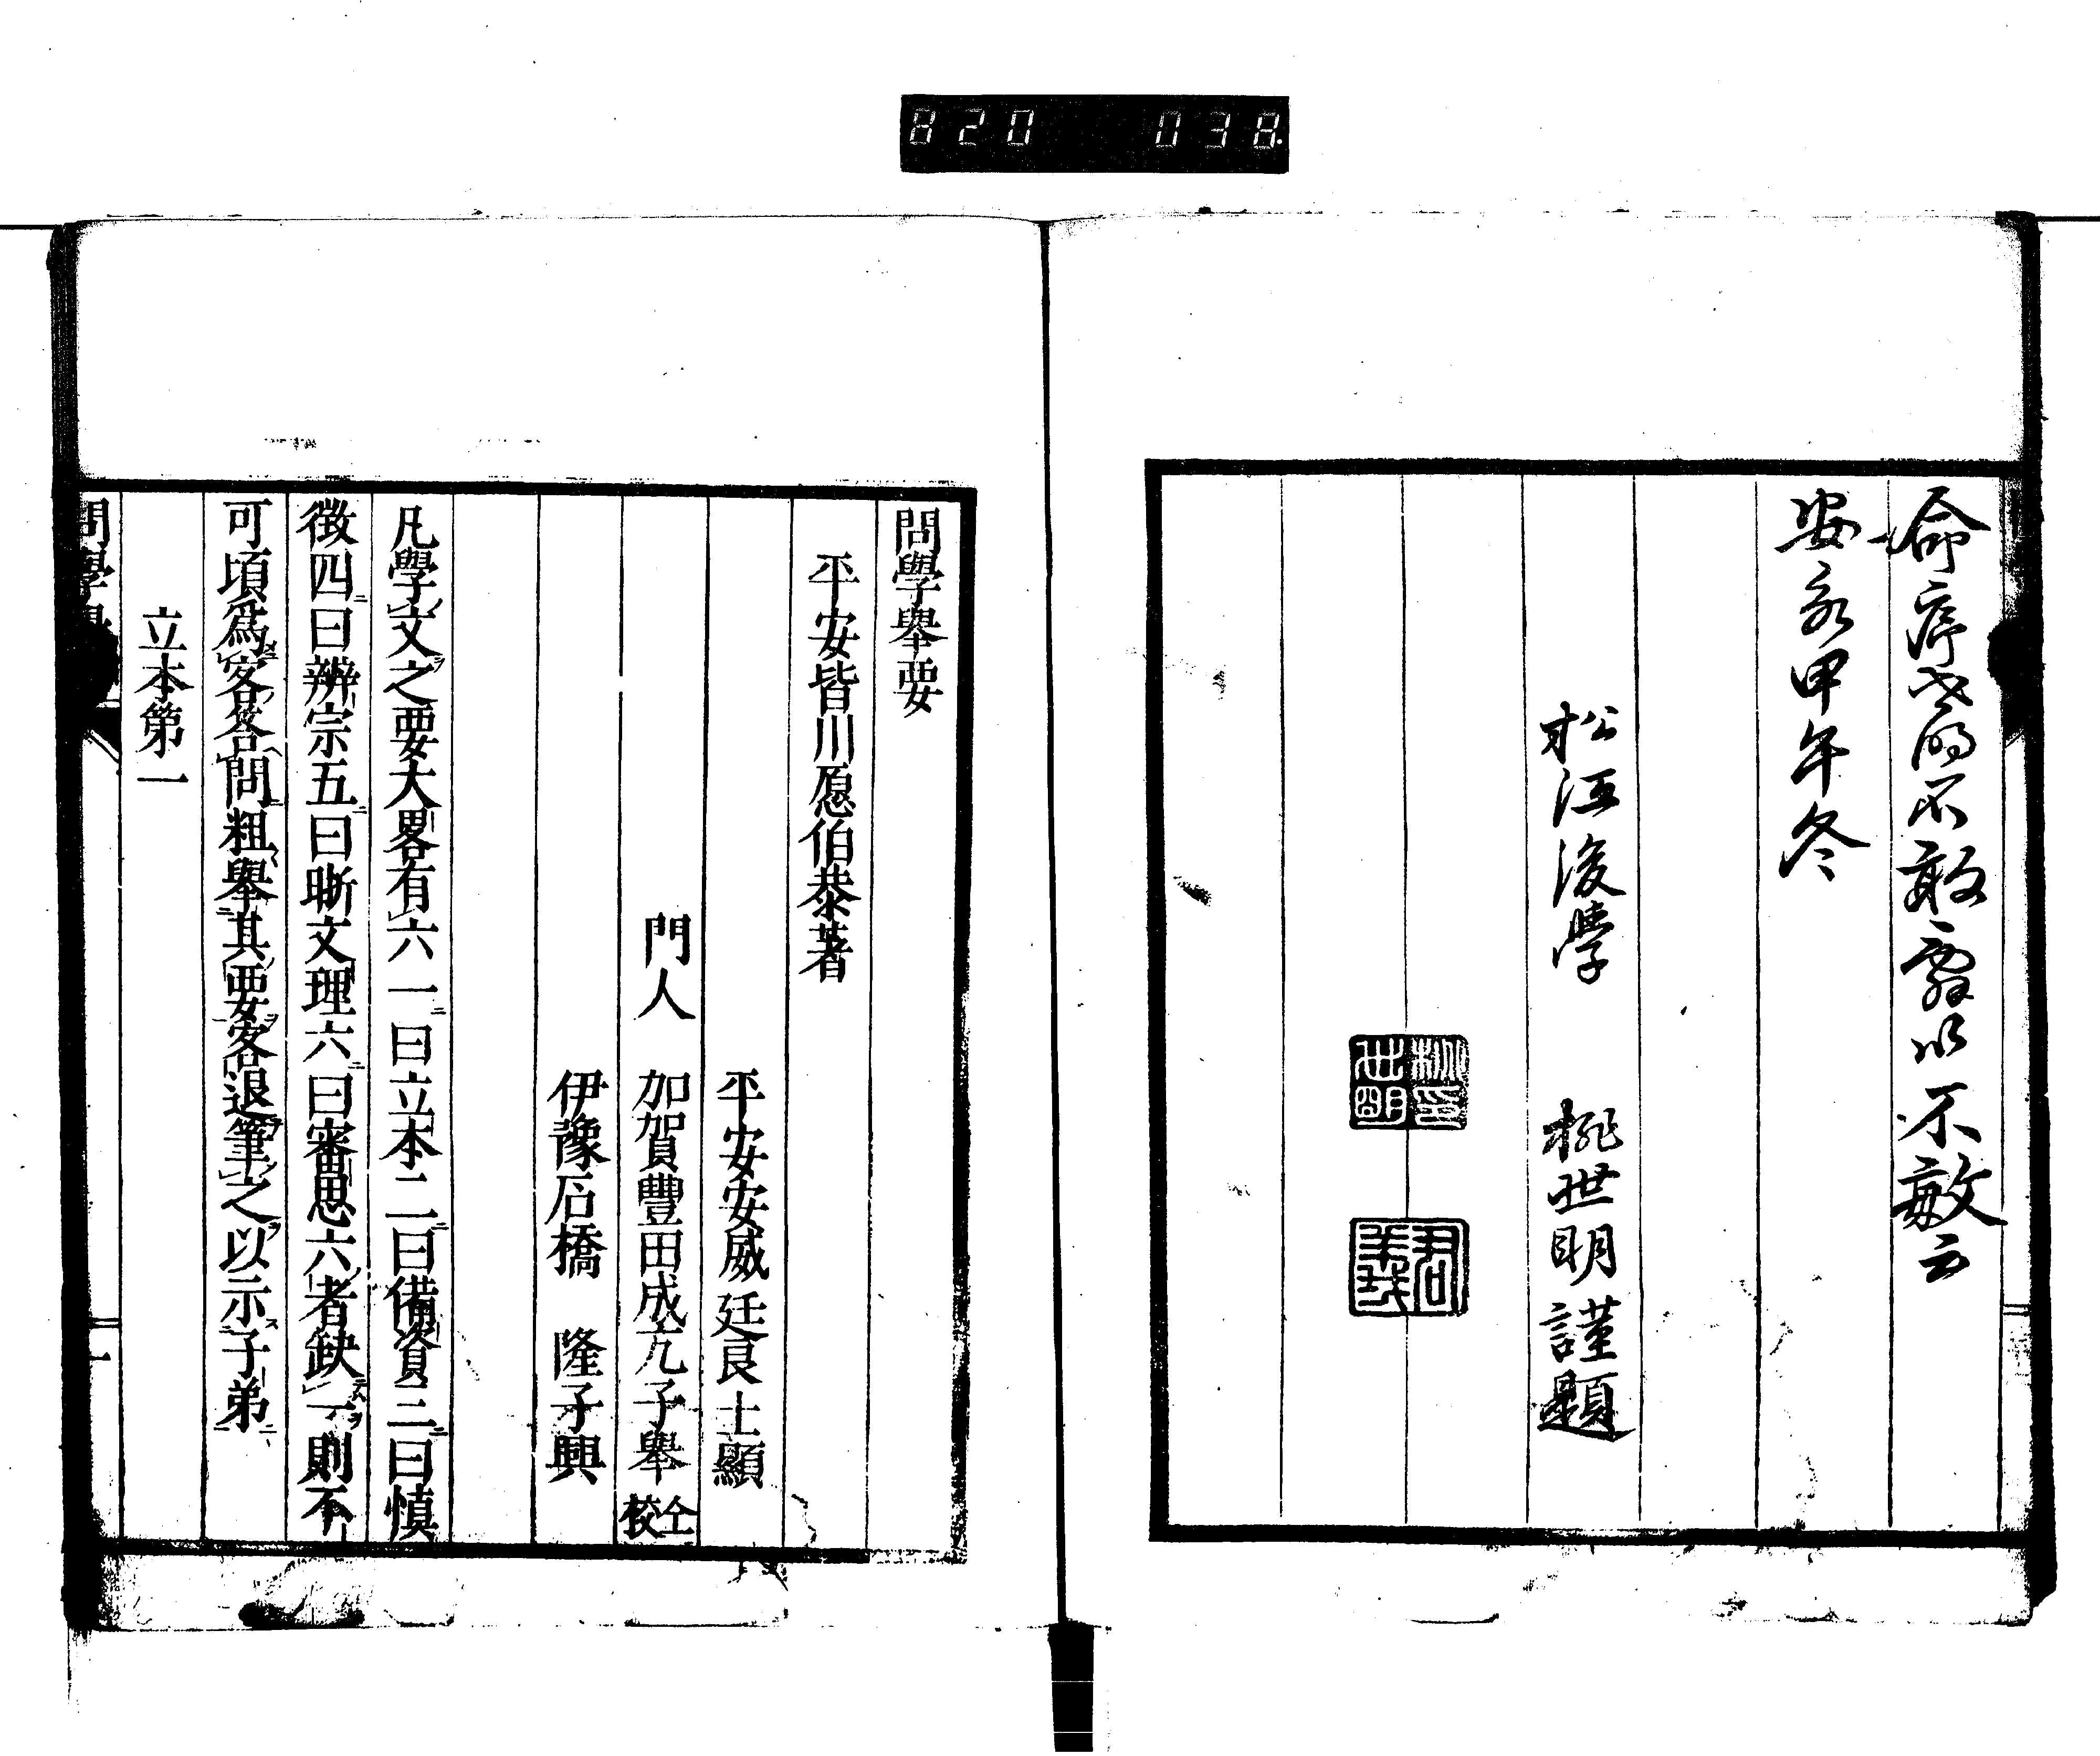 820 038
命序
不敢
以不敏云
安永甲午冬
松江後學 桃世明謹題
桃印世明
君
問學舉要
平安皆川愿伯恭著
平安安威廷良士顯
門人 加賀豐田成允子舉 仝校
伊豫石橋 隆子興
凡學文之要大畧有六一曰立本二曰備資三曰慎
徵四曰辨宗五曰晰文理六曰審思六者缺一則不
可頃爲客答問粗舉其要客退筆之以示子弟
立本第一
問學
一